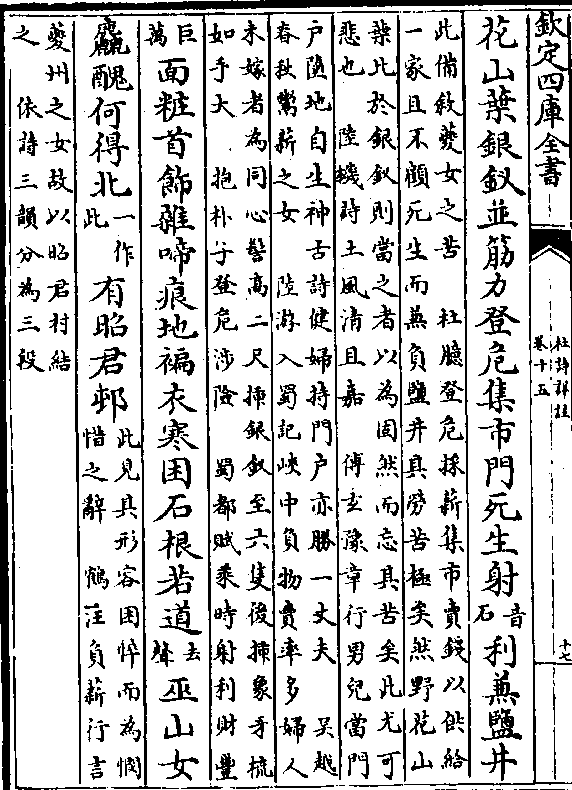 欽定四庫全書
杜詩詳註
卷十五
十七
花山葉銀釵並筋力登危集市門死生射音石利兼鹽井
此備敘夔女之苦 杜臆登危採薪集市賣錢以供給
一家且不顧死生而兼負鹽井其勞苦極矣然野花山
葉比於銀釵則當之者以為固然而忘其苦矣此尤可
悲也 陸機詩土風清且嘉 傅玄豫章行男兒當門
戶墮地自生神古詩健婦持門戶亦勝一丈夫 吳越
春秋鬻薪之女 陸游入蜀記峽中負物賣率多婦人
未嫁者為同心髻高二尺插銀釵至六隻後插象牙梳
如手大 抱朴子登危涉險 蜀都賦乘時射利財豐
巨萬面粧首飾雜啼痕地褊衣寒困石根若道去聲巫山女
麤醜何得北一作此有昭君邨此見其形容困悴而為憫惜之辭 鶴注負薪行言
夔州之女故以昭君村結
之 依詩三韻分為三段